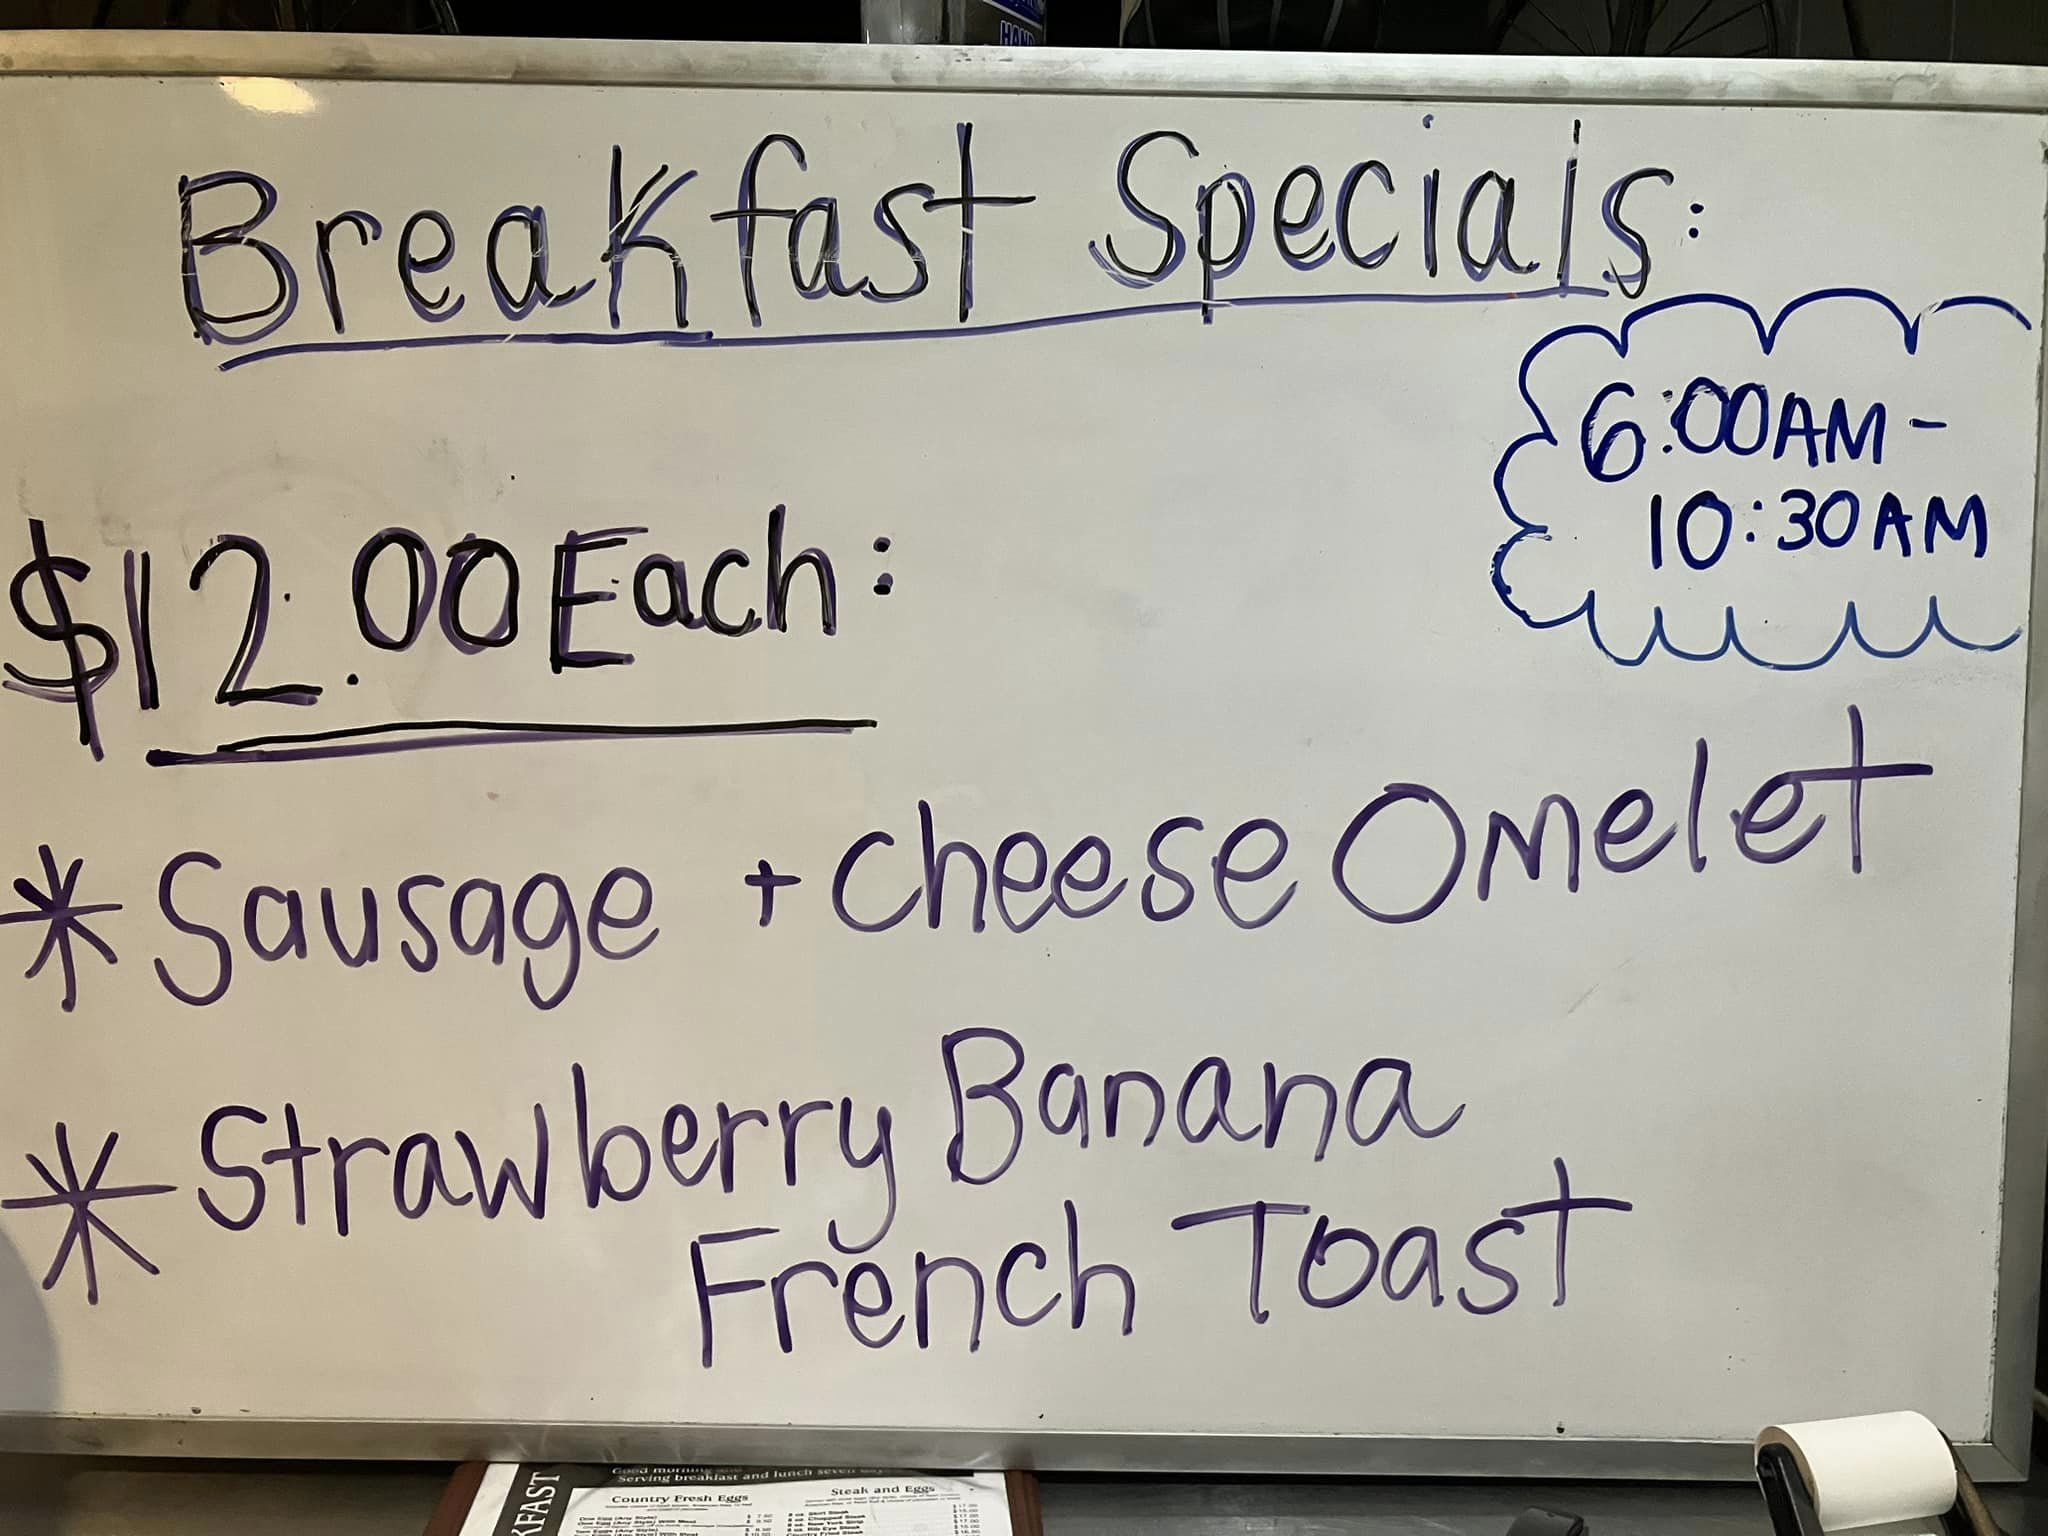 HAND
Breakfast Specials:
6:00AM-
10:30AM
$12.00 Each:
* Sausage + Cheese Omelet
* Strawberry Banana
French Toast
Good morning
Serving breakfast and lunch seven
Country Fresh Eggs
Steak and Eggs